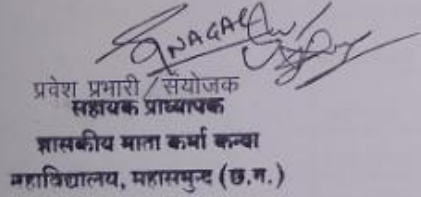 प्रवेश प्रभारी / संयोजक
सहायक प्राध्यापक
शासकीय माता कर्मा कन्या
महाविद्यालय, महासमुन्द (छ.ग.)